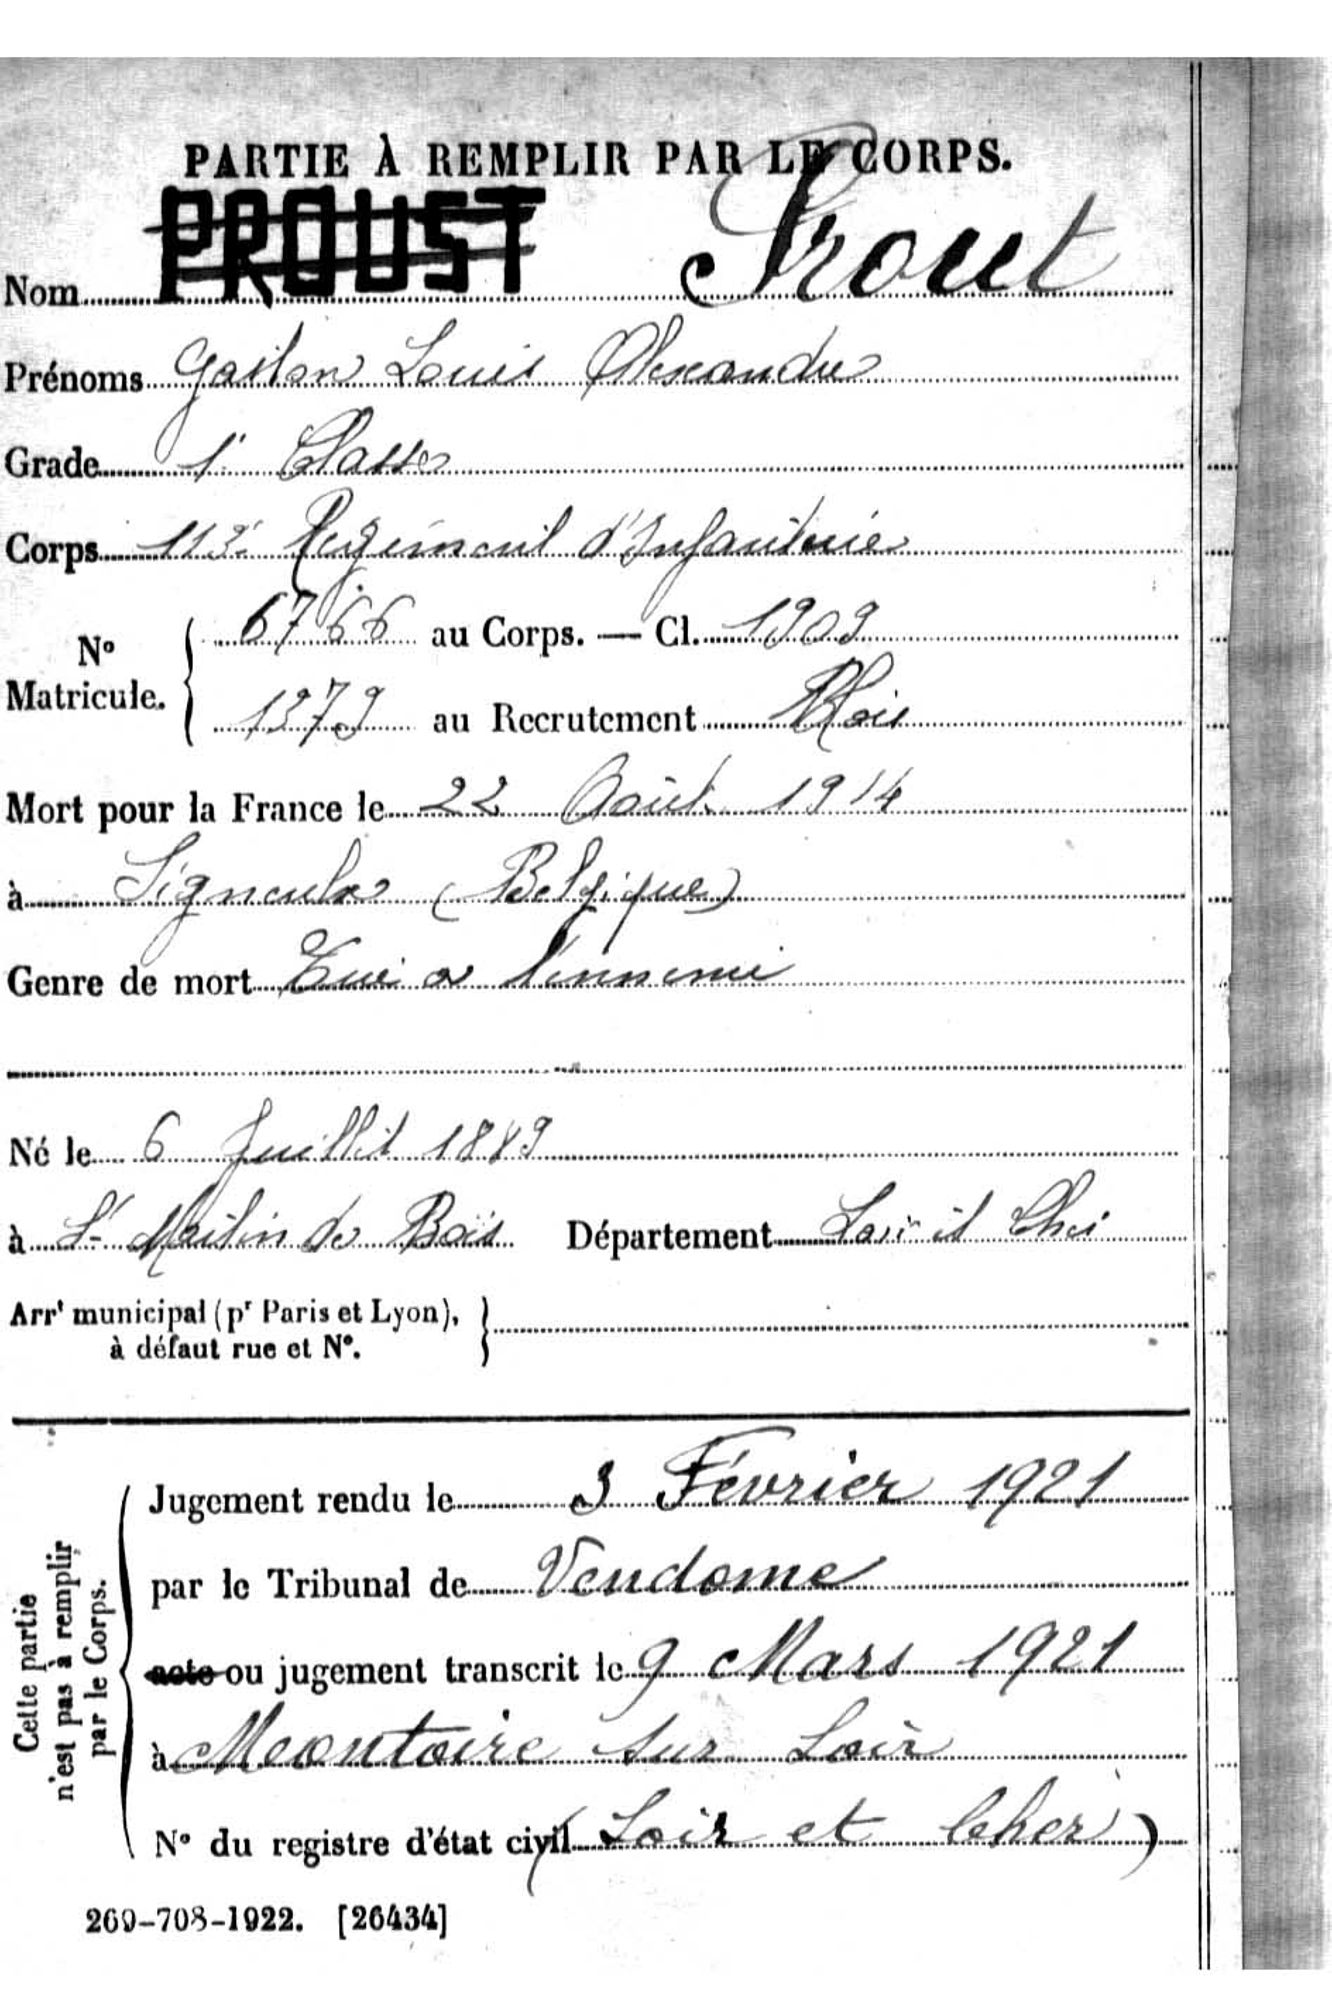 PARTIE À REMPLIR PAR LE CORPS.
Nom PROUST Prout
Prénoms Gaston Louis Alexandre
Grade 1e Classe
Corps 113e Régiment d'Infanterie
No
Matricule.
6766 au Corps. — Cl. 1909
1379 au Recrutement Blois
Mort pour la France le 22 Août 1914
à Signeulx (Belgique)
Genre de mort Tué à l'ennemi
Né le 6 Juillet 1889
à St Martin des Bois Département Loir et Cher
Arrt municipal (pr Paris et Lyon),
à défaut rue et No.
Cette partie
n'est pas à remplir
par le Corps.
Jugement rendu le 3 Février 1921
par le Tribunal de Vendome
acte ou jugement transcrit le 9 Mars 1921
à Montoire sur Loir
No du registre d'état civil (Loir et Cher)
269-708-1922. [26434]